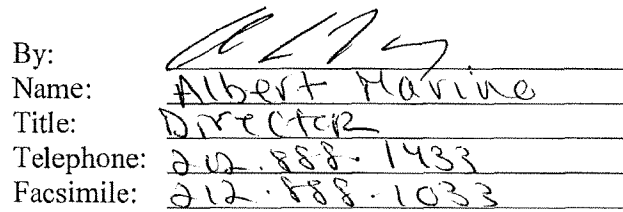 By:
Name: Albert Marino
Title: Director
Telephone: 212.888.1433
Facsimile: 212.888.1033